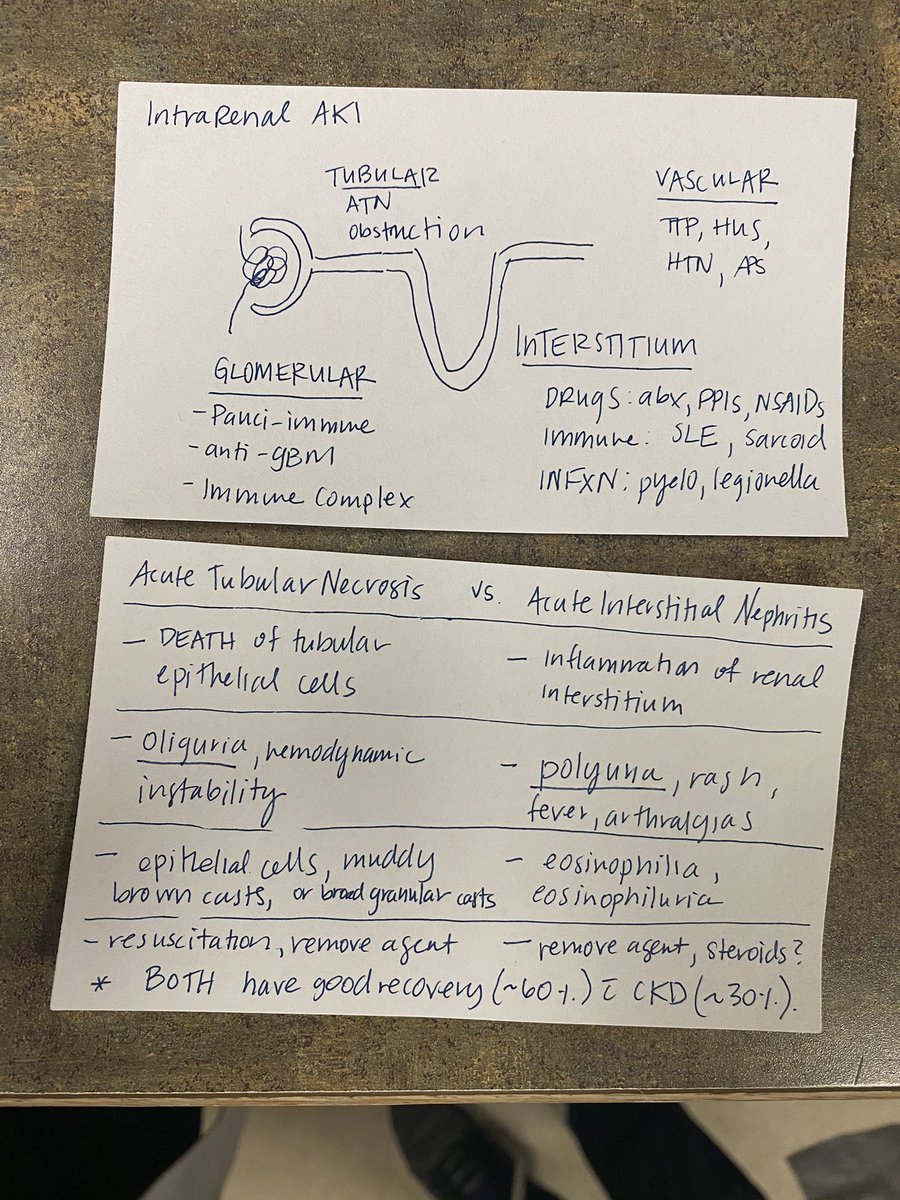 Intrarenal AKI
TUBULAR
ATN
obstruction
VASCULAR
TTP, HUS,
HTN, APS
GLOMERULAR
- Pauci-immune
- anti-gBM
- Immune complex
INTERSTITIUM
DRUGS: abx, PPIs, NSAIDs
Immune: SLE, sarcoid
INFXN: pyelo, legionella
Acute Tubular Necrosis vs. Acute Interstitial Nephritis
- DEATH of tubular
epithelial cells
- Inflammation of renal
interstitium
- oliguria, hemodynamic
instability
- polyuria, rash,
fever, arthralgias
- epithelial cells, muddy
brown casts, or broad granular casts
- eosinophilia,
eosinophiluria
- resuscitation, remove agent
- remove agent, steroids?
* BOTH have good recovery (~60%) c̄ CKD (~30%).